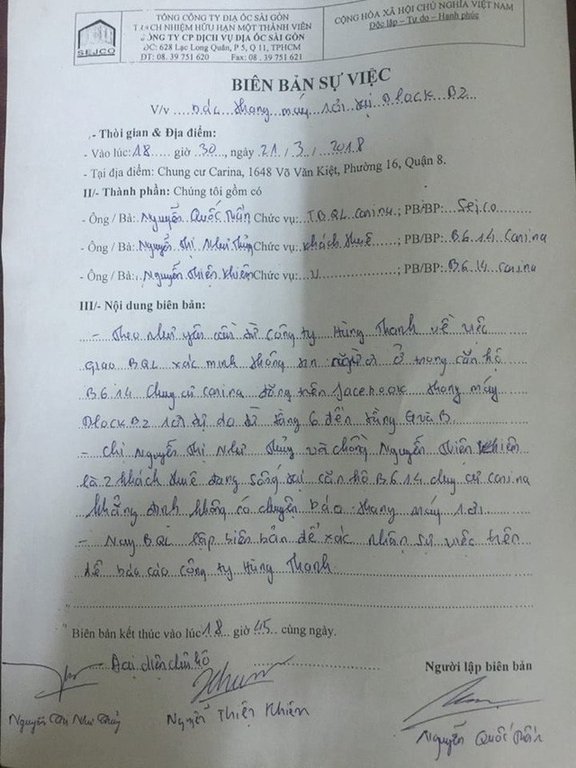 SEJCO
TỔNG CÔNG TY ĐỊA ỐC SÀI GÒN
TRÁCH NHIỆM HỮU HẠN MỘT THÀNH VIÊN
CÔNG TY CP DỊCH VỤ ĐỊA ỐC SÀI GÒN
ĐC: 628 Lạc Long Quân, P 5, Q 11, TPHCM
ĐT: 08. 39 751 620 Fax: 08. 39 751 621
CỘNG HÒA XÃ HỘI CHỦ NGHĨA VIỆT NAM
Độc lập – Tự do – Hạnh phúc
BIÊN BẢN SỰ VIỆC
V/v báo thang máy rơi tại Block B2
- Thời gian & Địa điểm:
- Vào lúc: 18 giờ 30, ngày 21 / 3 / 2018
- Tại địa điểm: Chung cư Carina, 1648 Võ Văn Kiệt, Phường 16, Quận 8.
II/- Thành phần: Chúng tôi gồm có
- Ông / Bà: Nguyễn Quốc Tuấn Chức vụ: TBQL carina; PB/BP: Sejco
- Ông / Bà: Nguyễn Thị Như Thủy Chức vụ: khách thuê; PB/BP: B6.14 carina
- Ông / Bà: Nguyễn Thiện Khiêm Chức vụ: ; PB/BP: B6.14 carina
III/- Nội dung biên bản:
- Theo như yêu cầu từ công ty Hùng Thanh về việc
giao BQL xác minh thông tin ở trong căn hộ
B6.14 chung cư carina đăng trên facebook thang máy
Block B2 rơi tự do từ tầng 6 đến tầng
- Chị Nguyễn Thị Như Thủy và chồng Nguyễn Thiện Khiêm
là 2 khách thuê đang sống tại căn hộ B6.14 chung cư carina
khẳng định không có chuyện báo thang máy rơi.
- Nay BQL lập biên bản để xác nhận sự việc trên
để báo cáo công ty Hùng Thanh
Biên bản kết thúc vào lúc 18 giờ 45 cùng ngày.
Đại diện căn hộ
Người lập biên bản
Nguyễn Thị Như Thủy
Nguyễn Thiện Khiêm
Nguyễn Quốc Tuấn